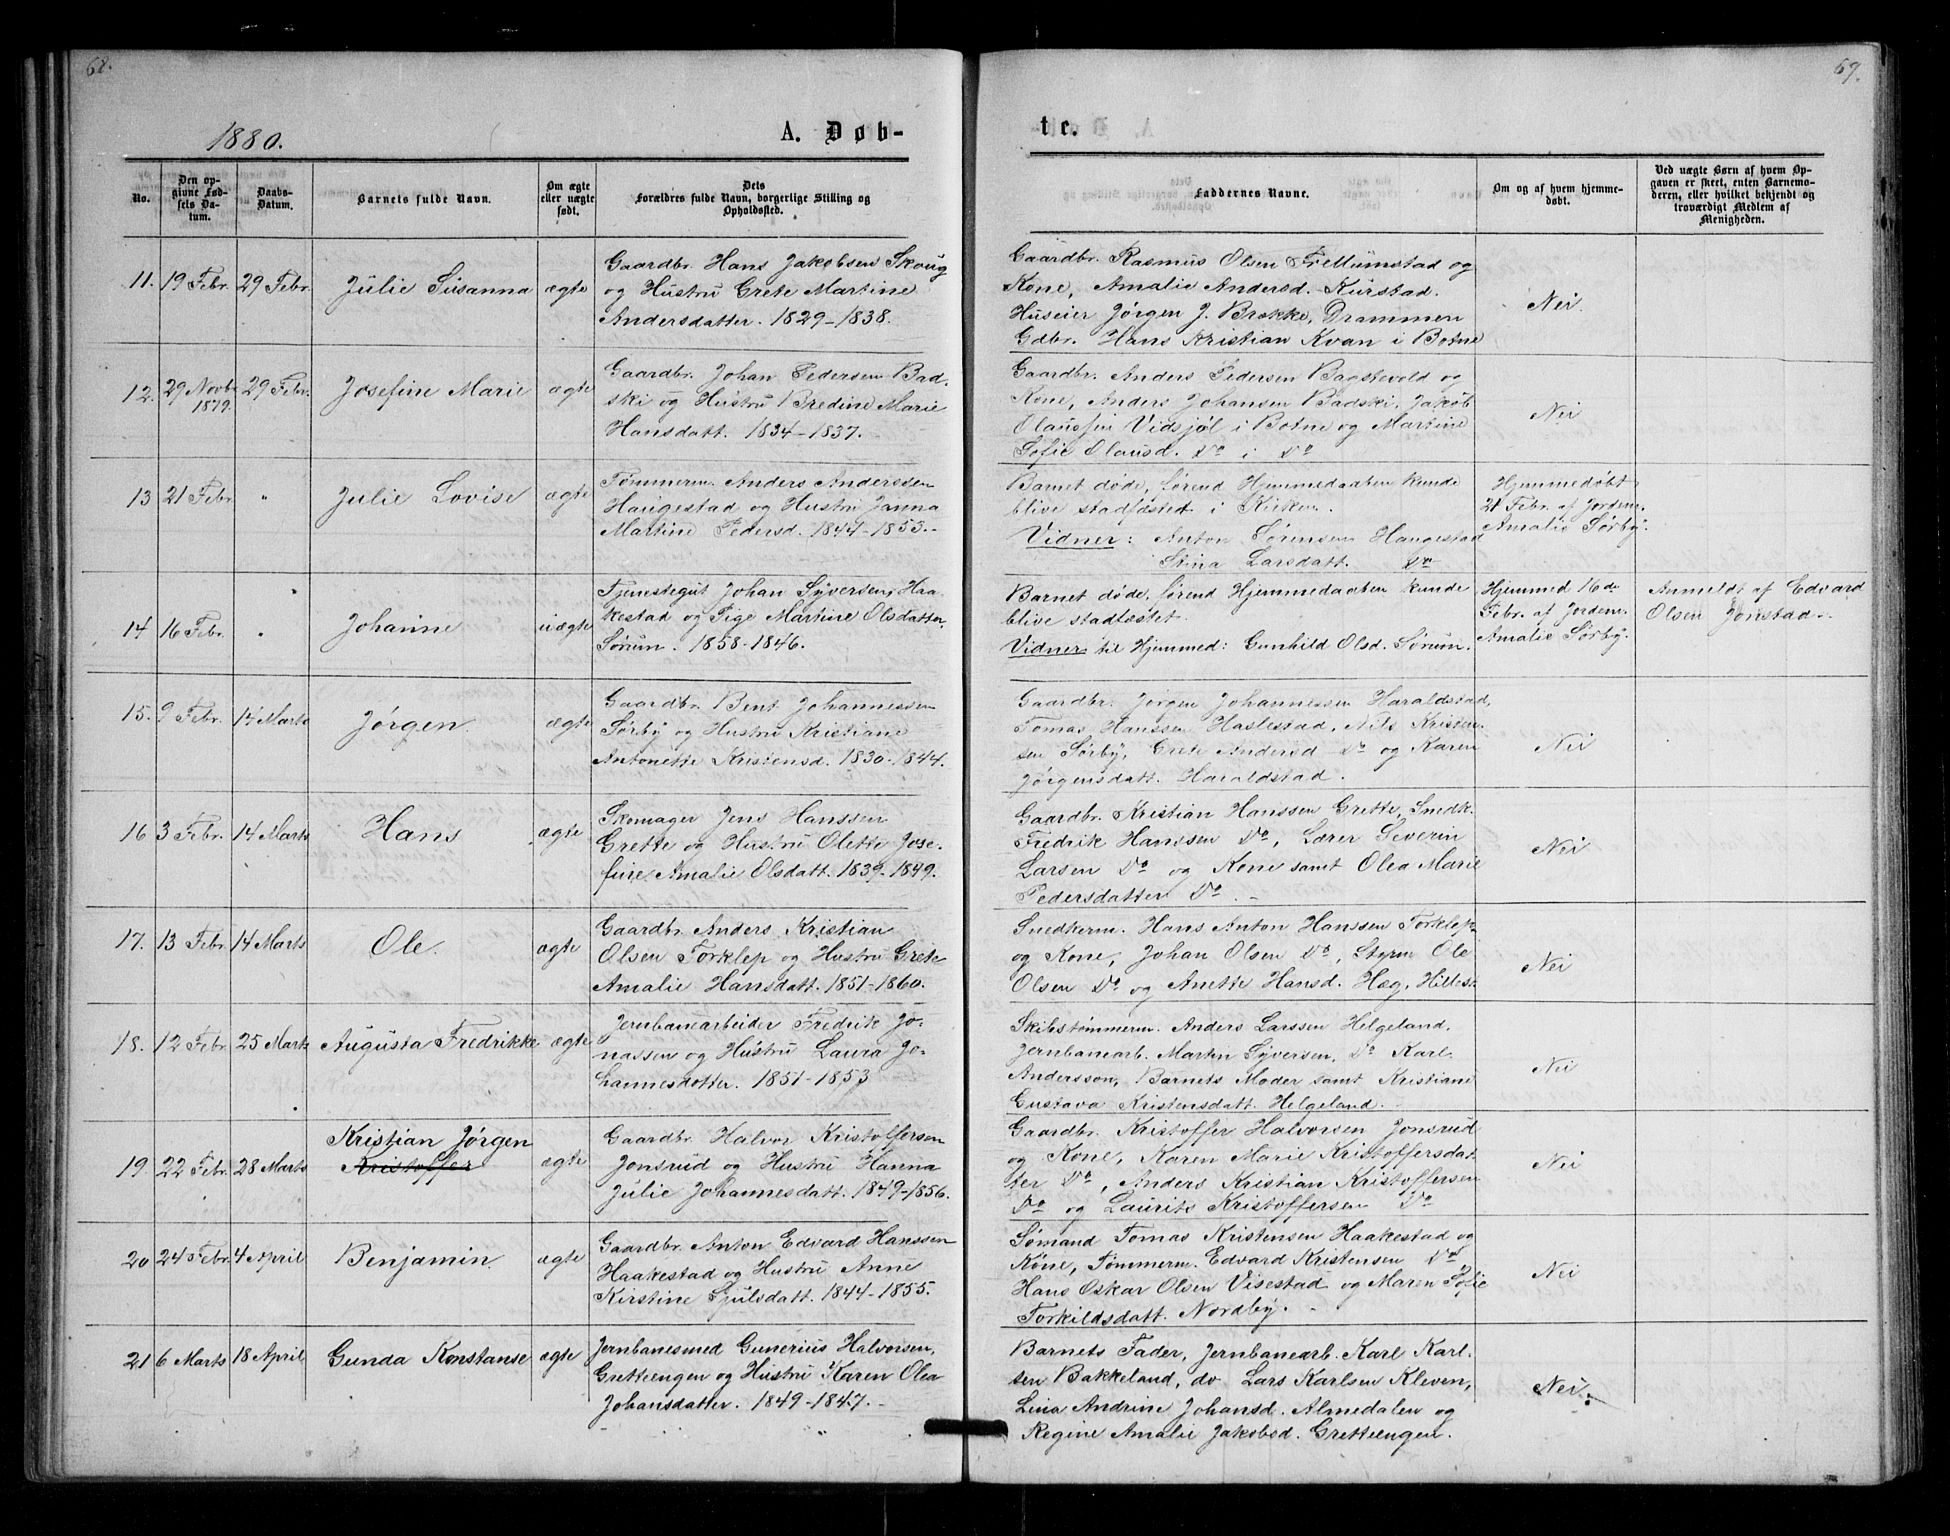 68.
1880.
A. Døb-
No.
Den op-
givne Fød-
sels Da-
tum.
Daabs-
Datum.
Barnets fulde Navn.
Om ægte
eller uægte
født.
Dets
Forældres fulde Navn, borgerlige Stilling og
Opholdssted.
11. 19 Febr. 29 Febr. Julie Susanna ægte
Gaardbr. Hans Jakobsen Skoug
og Hustru Grete Martine
Andersdatter. 1829-1838.
12. 29 Novbr. 1879. 29 Febr. Josefine Marie ægte
Gaardbr. Johan Pedersen Bad-
ski og Hustru Bredine Marie
Hansdatt. 1834-1837.
13 21 Febr. " Julie Lovise ægte
Tømmerm. Anders Anderssen
Haugestad og Hustru Janna
Martine Pedersd. 1844-1853.-
14 16 Febr. " Johanne uægte
Tjenestegut Johan Syversen, Haa-
kestad og Pige Martine Olsdatter
Sørum. 1858-1846.
15. 9 Febr. 14 Marts Jørgen. ægte
Gaardbr. Bent Johannessen
Sørby og Hustru Kristiane
Antonette Kristensd. 1830-1844.
16 3 Febr. 14 Marts Hans ægte
Skomager Jens Hanssen
Grette og Hustru Olette Jose-
fine Amalie Olsdatt. 1839-1849.
17. 13 Febr. 14 Marts Ole. ægte
Gaardbr. Anders Kristian
Olsen Torklep og Hustru Grete
Amalie Hansdatt. 1851-1860.
18. 12 Febr. 25 Marts Augusta Fredrikke ægte
Jernbanearbeider Fredrik Jo-
nassen og Hustru Laura Jo-
hannesdatter. 1851-1853
19. 22 Febr. 28 Marts Kristian Jørgen
Kristoffer ægte
Gaardbr. Halvor Kristoffersen
Jonsrud og Hustru Hanna
Julie Johannesdatt. 1849-1856.
20 24 Febr. 4 April Benjamin ægte
Gaardbr. Anton Edvard Hanssen
Haakestad og Hustru Anne
Kirstine Spulsdatt. 1844-1855.
21 6 Marts 18 April Gunda Konstanse ægte
Jernbanesmed Gunerius Halvorsen,
Gretteengen og Hustru Karen Olea
Johansdatter. 1849-1847.-
69.
te.
Faddernes Navne.
Om og af hvem hjemme-
døbt.
Ved uægte Børn af hvem Op-
gaven er skeet, enten Barnemo-
deren, eller hvilket bekjendt og
troværdigt Medlem af
Menigheden.
Gaardbr. Rasmus Olsen Fr. Mumstad og
Kone, Amalie Andersd. Kurstad.
Huseier Jørgen J. Brække, Drammen
Gdbr. Hans Kristian Kvan i Botne
Nei.
Gaardbr. Anders Pedersen Bagstevold og
Kone, Anders Johansen Badski, Jakob
Olaussen Vidsjøl i Botne og Martine
Sofie Olausd. Do i Do
Nei
Barnet døde, førend Hjemmedaaben kunde
blive stadfæstet i Kirken.
Vidner: Anton Sørensen Haugestad
Stina Larsdatt. Do
Hjemmedøbt
21 Febr. af Jordem.
Amalie Sørby.
Barnet døde, førend Hjemmedaaben kunde
blive stadfæstet.
Vidner til Hjemmed: Gunhild Olsd. Sørum.
Hjemmed 16de
Febr. af Jordem.
Amalie Sørby.
Anmeldt af Edvard
Olsen Jonstad.-
Gaardbr. Jørgen Johannessen Haraldstad,
Tomas Hanssen Haslestad, Nils Kristen-
sen Sørby, Grete Andersd Do og Karen
Jørgensdatt. Haraldstad.
Nei
Gaardbr. Kristian Hanssen Grette, Snedk.
Fredrik Hanssen Do, Lærer Severin
Larsen Do og Kone samt Olea Marie
Pedersdatter Do.-
Nei
Snedkerm. Hans Anton Hanssen Torklep
og Kone, Johan Olsen Do, Styrm Ole
Olsen Do og Anette Hansd. Hæg, Hillest.
Nei
Skibstømmerm. Anders Larssen Helgeland,
Jernbanearb. Martin Syversen, Do Karl
Andersson, Barnets Moder samt Kristiane
Gustava Kristensdatt. Helgeland.
Nei
Gaardbr. Kristoffer Halvorsen Jonsrud
og Kone, Karen Marie Kristoffersdat-
ter Do, Anders Kristian Kristoffersen
Do og Laurits Kristoffersen Do
Nei
Sømand Tomas Kristensen Haakestad og
Kone, Tømmerm. Edvard Kristensen Do
Hans Oskar Olsen Visestad og Maren Sofie
Torkildsdatt. Nordby.-
Nei
Barnets Fader, Jernbanearb. Karl Karl-
sen Bakkeland, do Lars Karlsen Kleven,
Lina Andrine Johansd. Almedalen og
Regine Amalie Jakobsd. Gretteengen.
Nei.